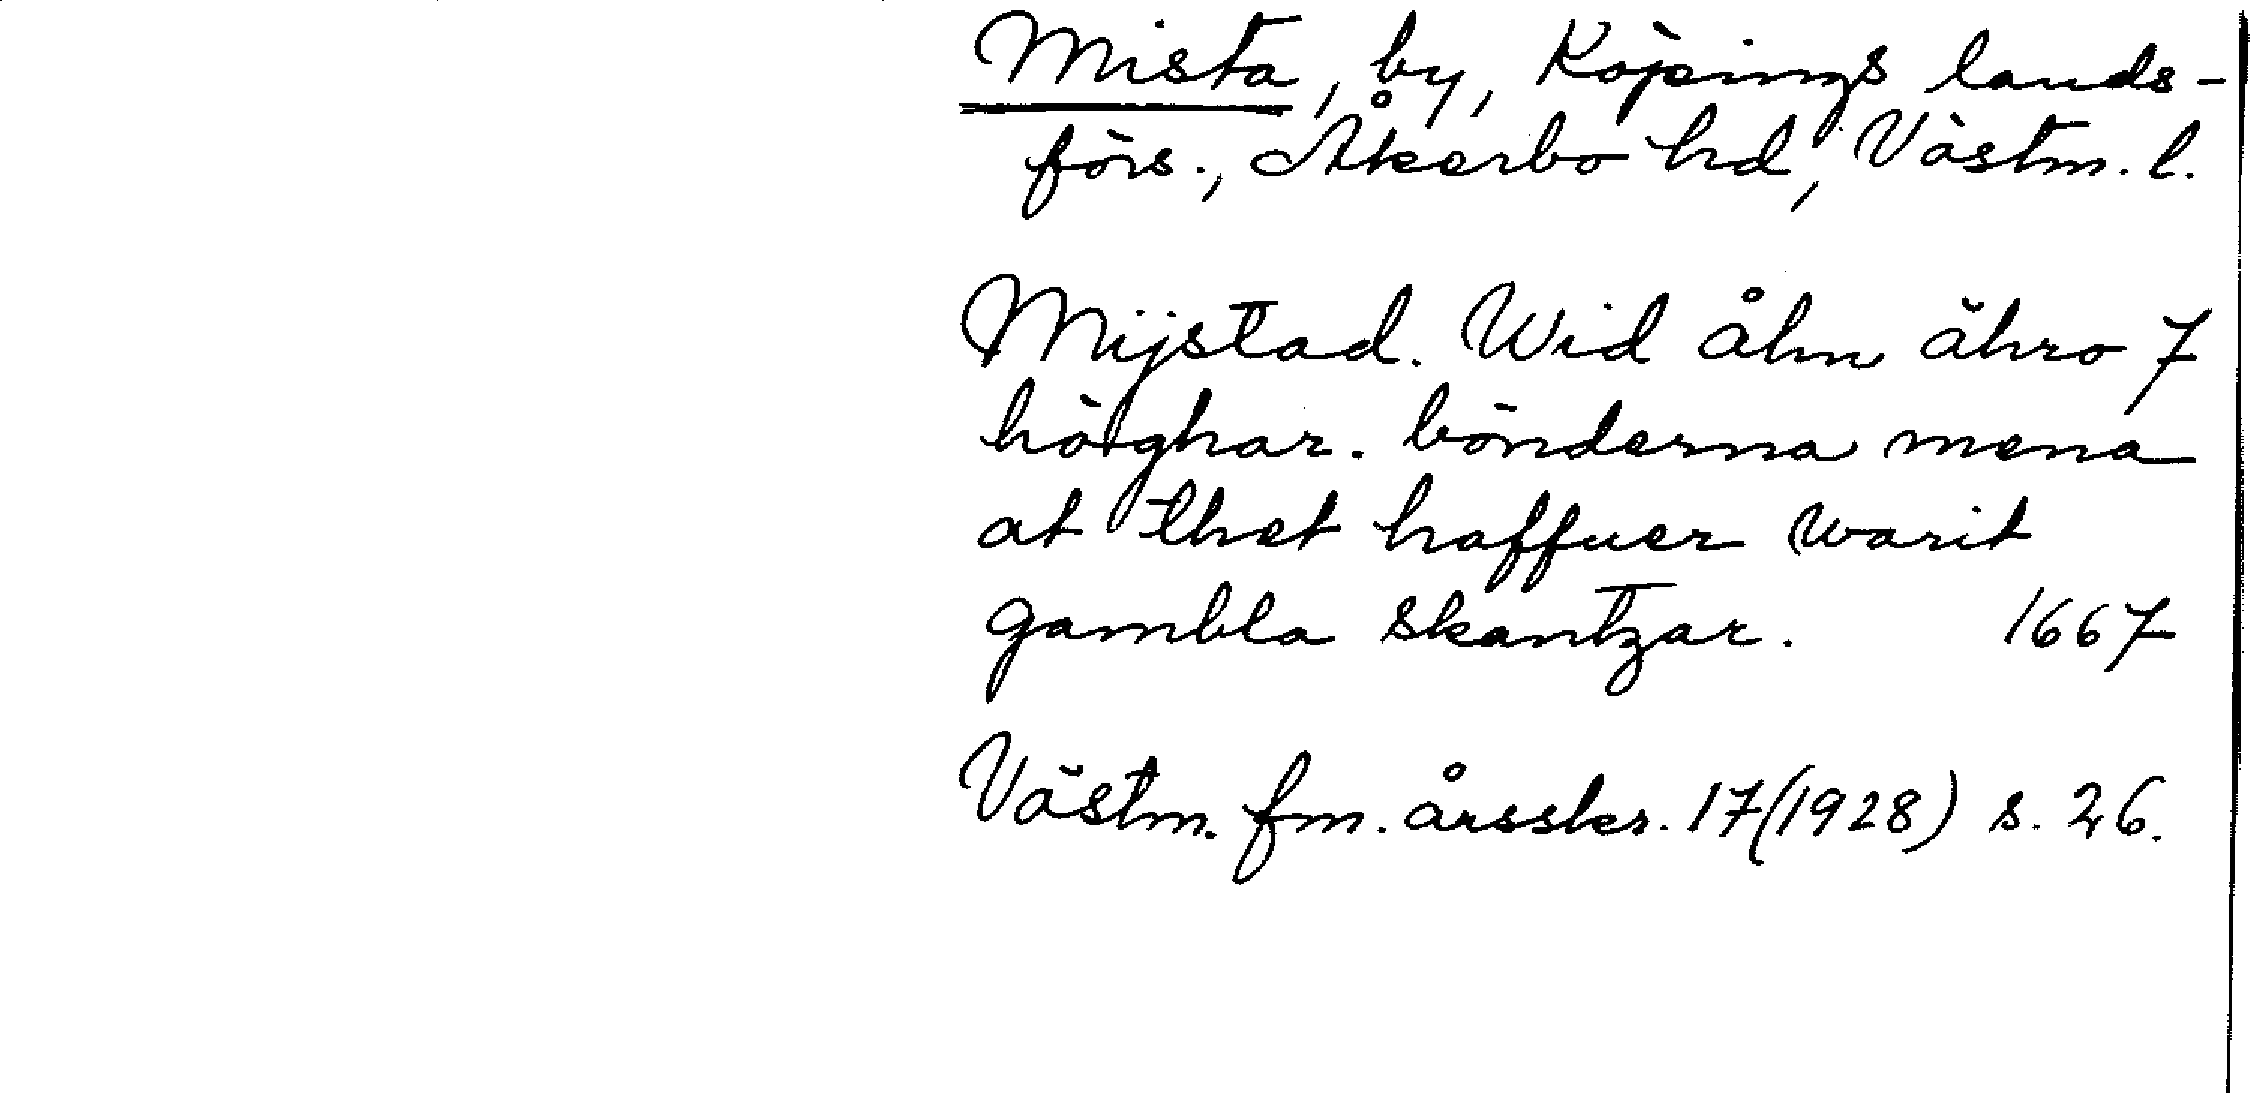 Mista, by, Köpings lands-
förs., Åkerbo hd, Västm. l.
Mijstad. Wid åhn ähro 7
höghar. bönderna mena
at thet haffuer warit
gambla skantzar. 1667
Västm. fm. årsskr. 17(1928) s. 26.